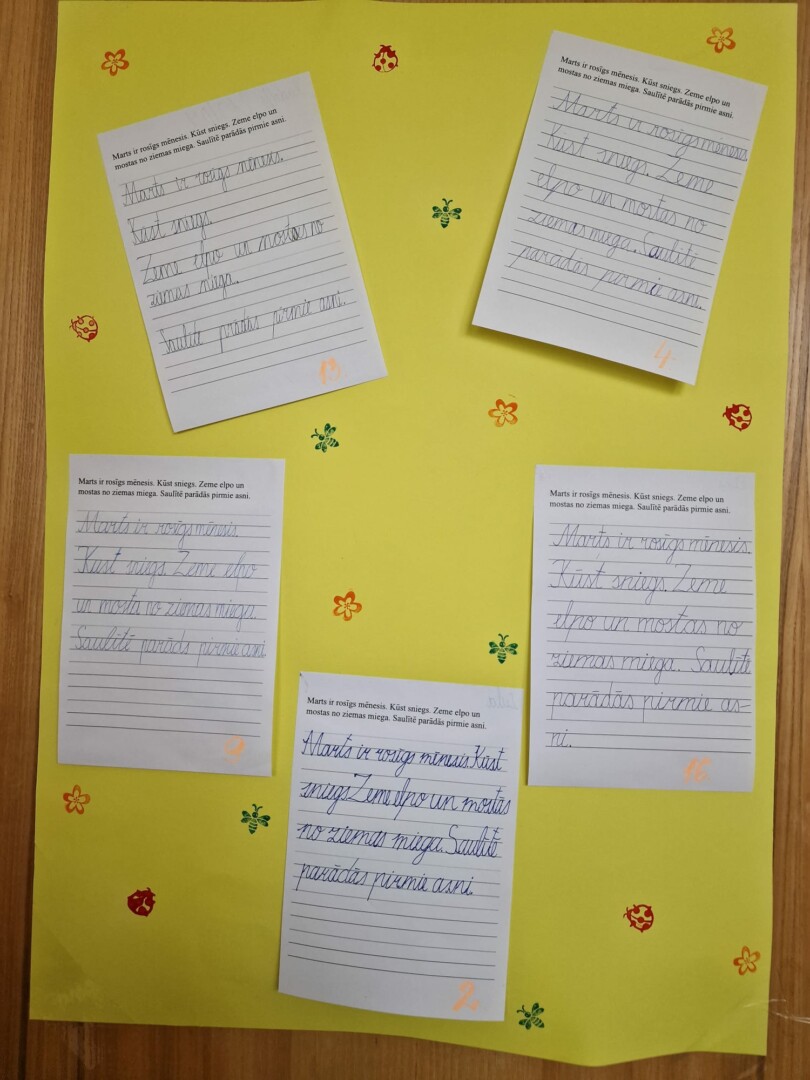 Marts ir rosīgs mēnesis. Kūst sniegs. Zeme elpo un
mostas no ziemas miega. Saulītē parādās pirmie asni.
Marts ir rosīgs mēnesis.
Kūst sniegs.
Zeme elpo un mostas no
ziemas miega.
Saulītē prādās pirmie asni.
13
Marts ir rosīgs mēnesis. Kūst sniegs. Zeme elpo un
mostas no ziemas miega. Saulītē parādās pirmie asni.
Marts ir rosīgs mēnesis
Kūst sniegs. Zeme
elpo un mostas no
ziemas miega. Saulītē
parādās pirmie asni.
4
Marts ir rosīgs mēnesis. Kūst sniegs. Zeme elpo un
mostas no ziemas miega. Saulītē parādās pirmie asni.
Marts ir rosīgs mēnesis.
Kūst sniegs. Zeme elpo
un mosta no ziemas miega
Saulītē parāds pirmie asni
9
Marts ir rosīgs mēnesis. Kūst sniegs. Zeme elpo un
mostas no ziemas miega. Saulītē parādās pirmie asni.
Marts ir rosīgs mēnesis.
Kūst sniegs. Zeme
elpo un mostas no
ziemas miega. Saulītē
parādās pirmie as-
ni.
Marts ir rosīgs mēnesis. Kūst sniegs. Zeme elpo un
mostas no ziemas miega. Saulītē parādās pirmie asni.
Marts ir rosīgs mēnesis. Kūst
sniegs. Zeme elpo un mostas
no ziemas miega. Saulītē
parādās pirmie asni.
2.